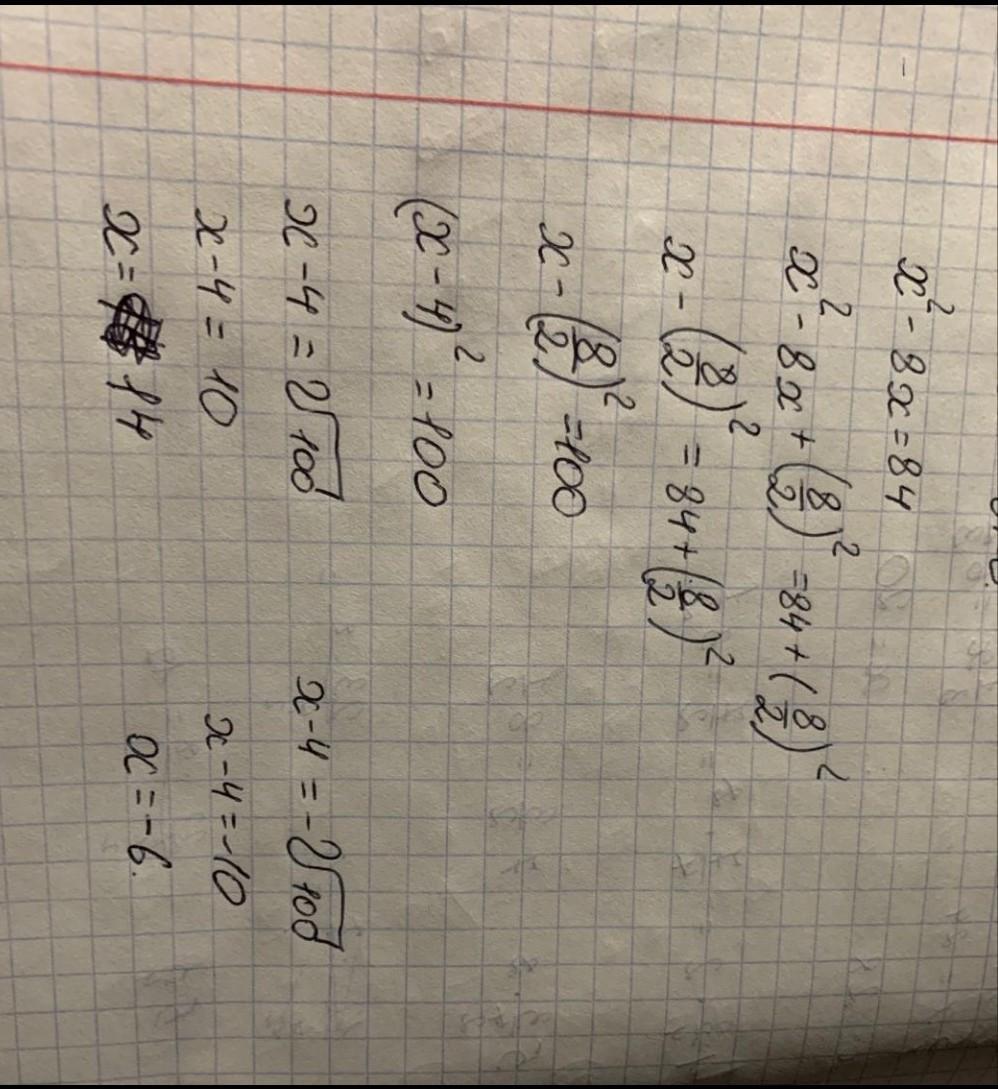 x² - 8x = 84
x² - 8x + (8/2)² = 84 + (8/2)²
x - (8/2)² = 84 + (8/2)²
x - (8/2)² = 100
(x - 4)² = 100
x - 4 = 2√100 x - 4 = -2√100
x - 4 = 10 x - 4 = -10
x = 14 x = -6.